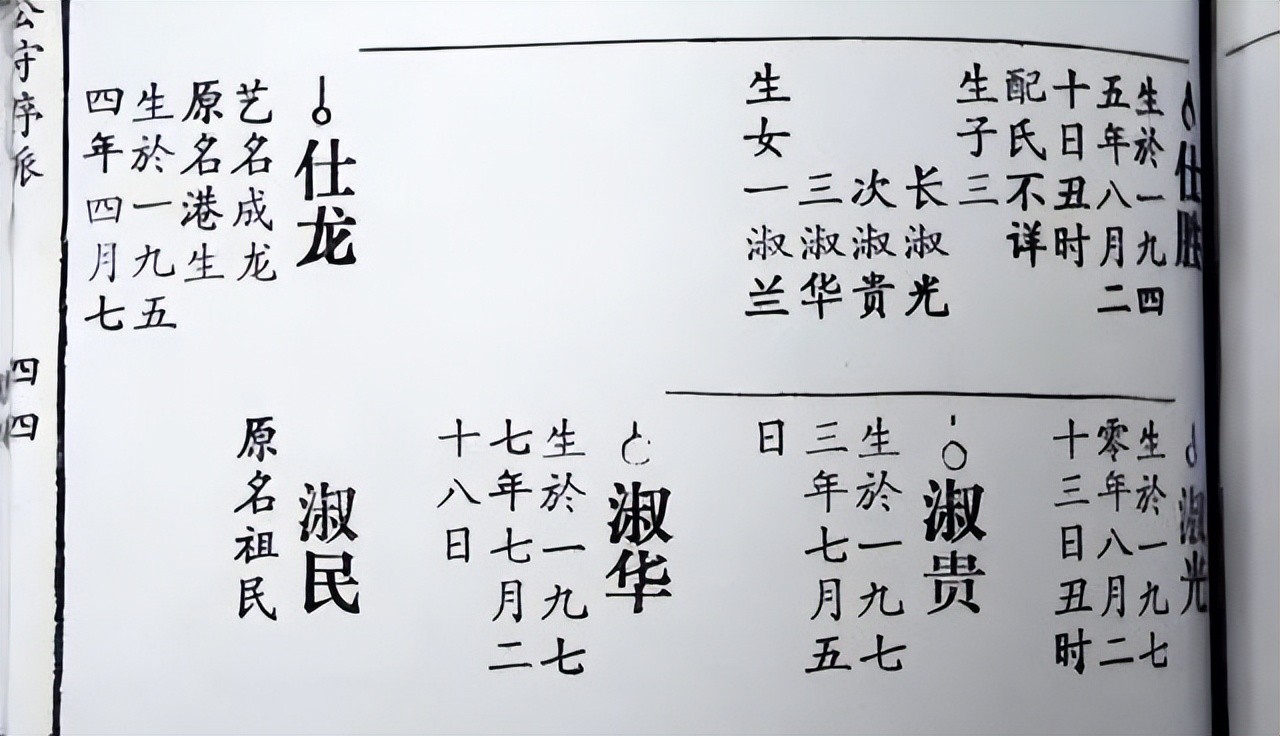 仕胜
生於一九四
五年八月二
十日丑时
配氏不详
生子三
长淑光
次淑贵
三淑华
生女一淑兰
仕龙
艺名成龙
原名港生
生於一九五
四年四月七
淑光
生於一九七
零年八月二
十三日丑时
淑贵
生於一九七
三年七月五
日
淑华
生於一九七
七年七月二
十八日
淑民
原名祖民
公守序派
四四